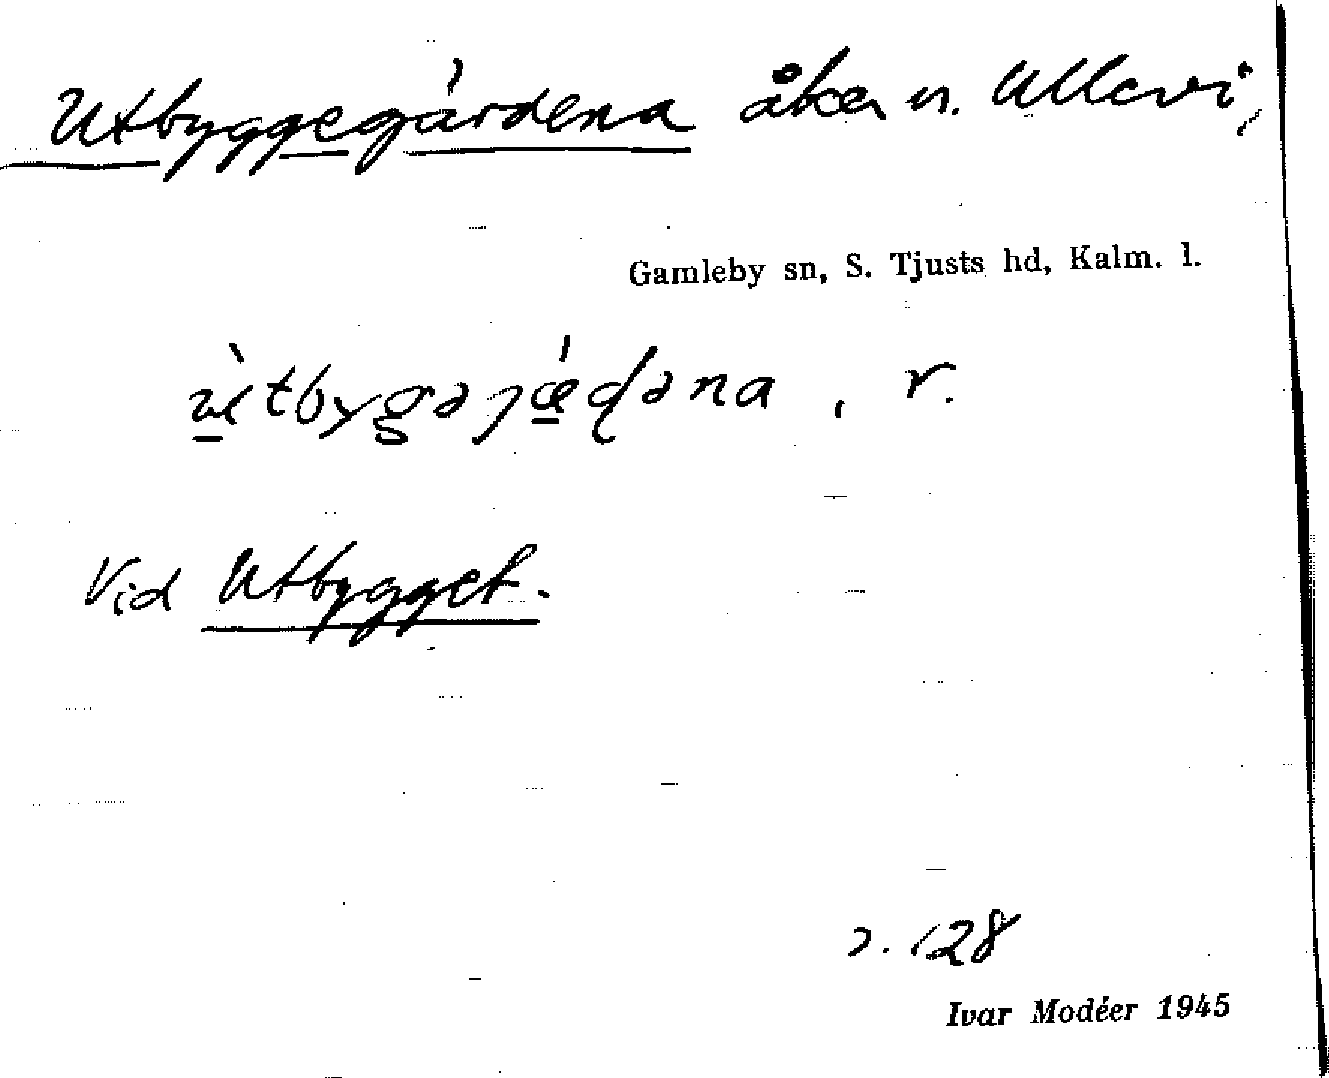 Utbyggegärdena åker n. Ullevi,
Gamleby sn, S. Tjusts hd, Kalm. l.
, r.
Vid Utbygget.
2. 128
Ivar Modéer 1945